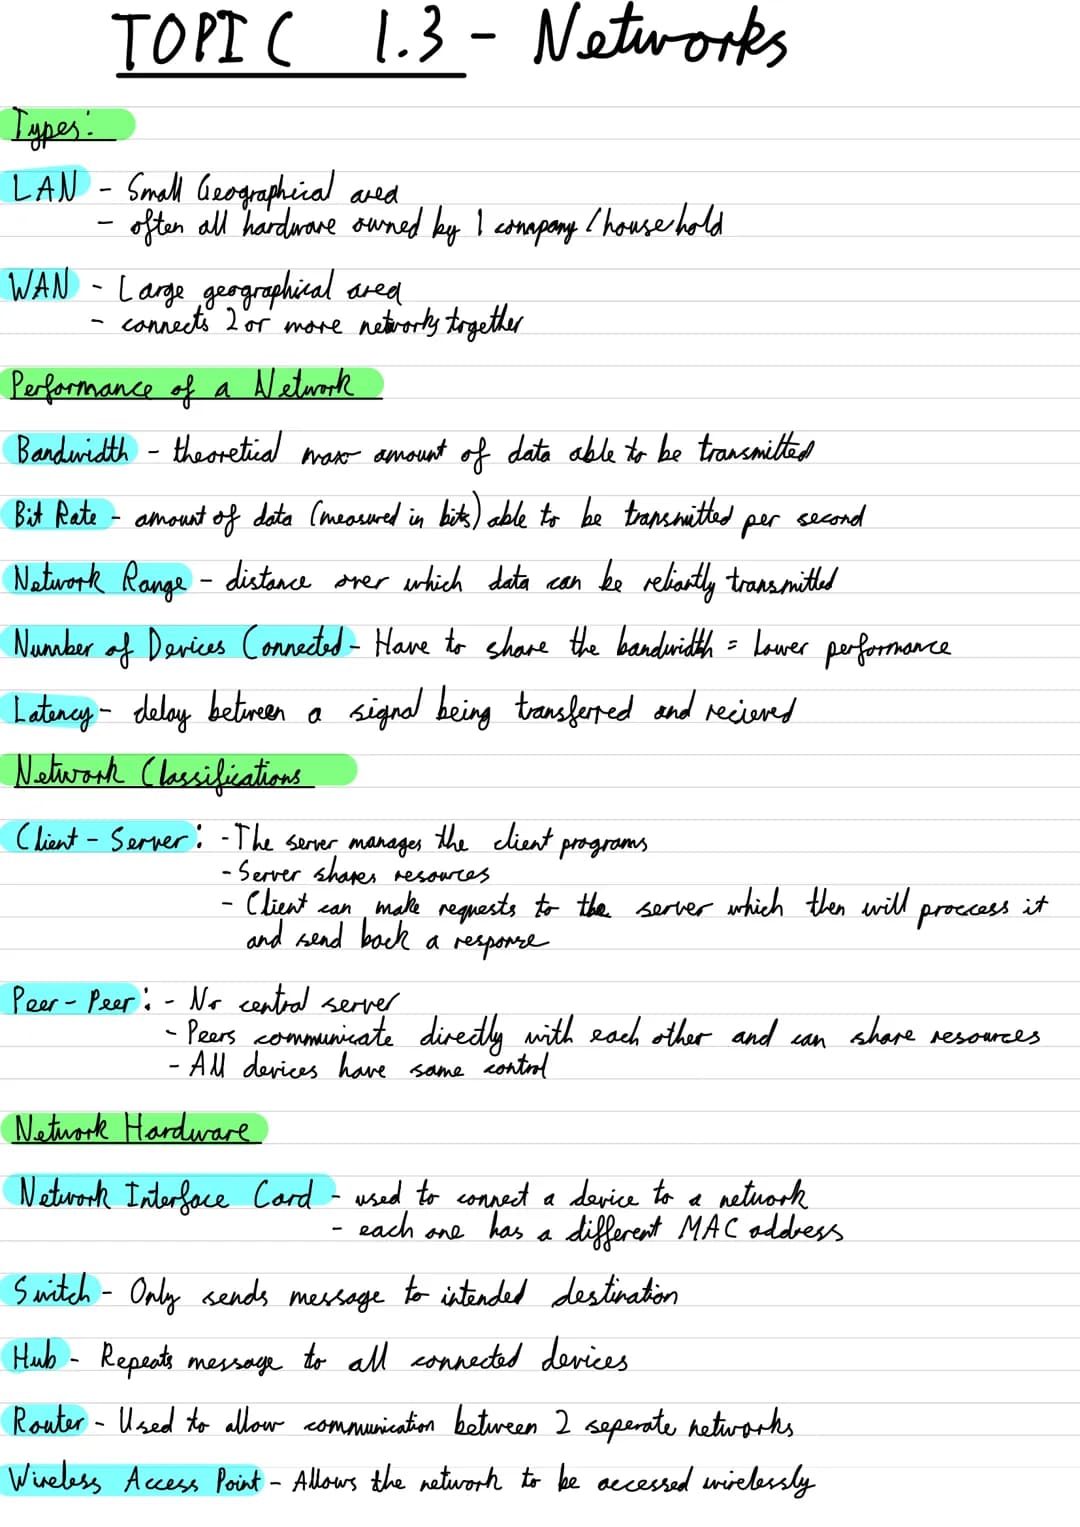 TOPIC 1.3 - Networks
Types:
LAN - Small Geographical area
- often all hardware owned by 1 company / household
WAN - Large geographical area
- connects 2 or more networks together
Performance of a Network
Bandwidth - theoretical max amount of data able to be transmitted
Bit Rate - amount of data (measured in bits) able to be transmitted per second
Network Range - distance over which data can be reliantly transmitted
Number of Devices Connected - Have to share the bandwidth = Lower performance
Latency - delay between a signal being transferred and recieved
Network Classifications
Client - Server: - The server manages the client programs
- Server shares resources
- Client can make requests to the server which then will proccess it
and send back a response
Peer - Peer: - No central server
- Peers communicate directly with each other and can share resources
- All devices have same control
Network Hardware
Network Interface Card - used to connect a device to a network
- each one has a different MAC address
Switch - Only sends message to intended destination
Hub - Repeats message to all connected devices
Router - Used to allow communication between 2 seperate networks
Wireless Access Point - Allows the network to be accessed wirelessly